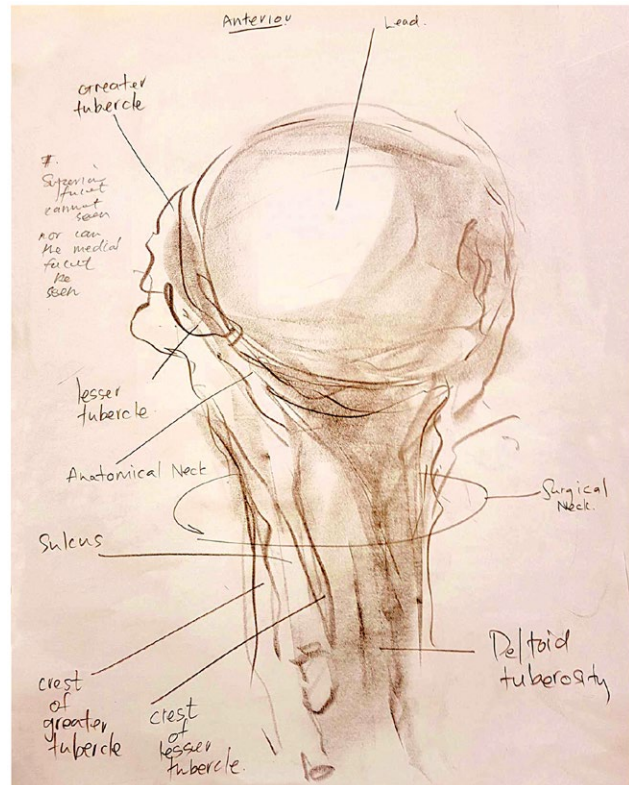 Anterior
Lead.
Greater
tubercle
Superior
facet
cannot
seen
nor can
the medial
facet
be
seen
lesser
tubercle
Anatomical Neck
Surgical
Neck.
Sulcus
Deltoid
tuberosity
crest
of
greater
tubercle
crest
of
lesser
tubercle.